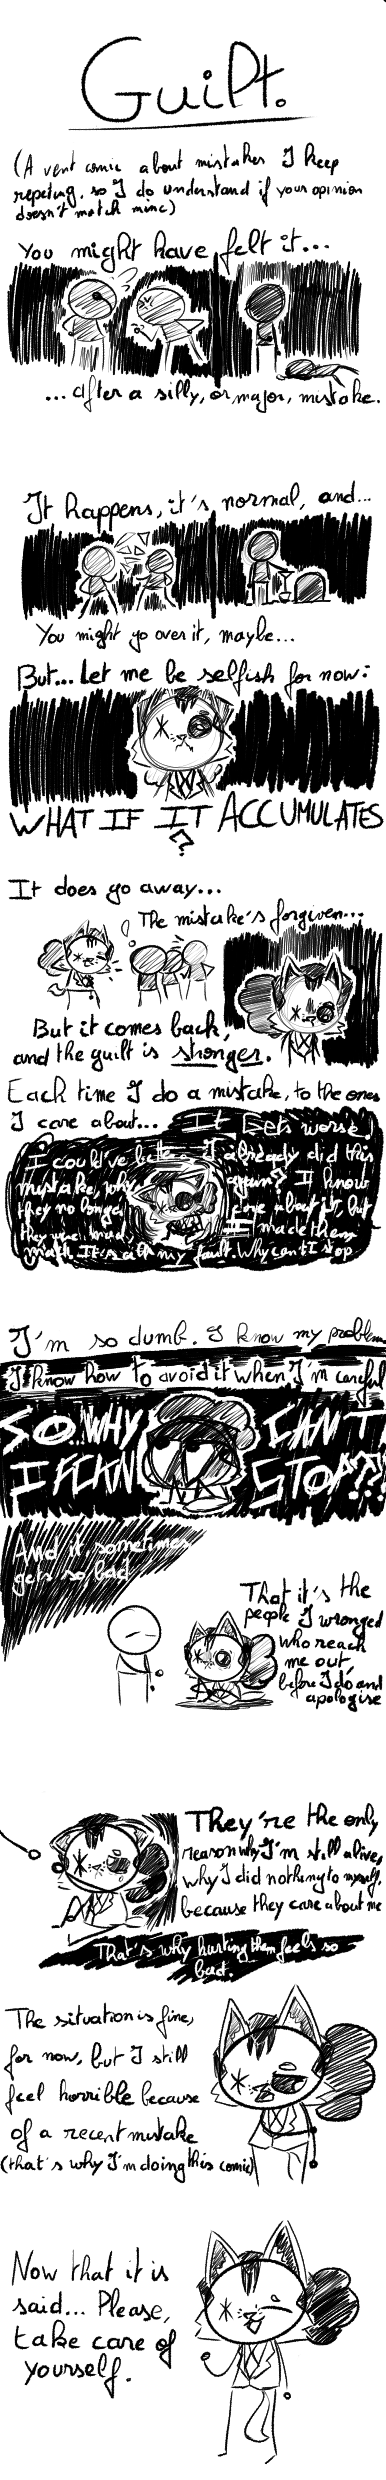 Guilt.
(A vent comic about mistakes I keep
repeting, so I do understand if your opinion
doesn't match mine)
You might have felt it...
...after a silly, or major, mistake.
It happens, it's normal, and...
You might go over it, maybe...
But... Let me be selfish for now:
WHAT IF IT ACCUMULATES
?
It does go away...
The mistake's forgiven...
But it comes back,
and the guilt is stronger.
Each time I do a mistake, to the ones
I care about... It Gets worse!
I could've I already did this
mistake, why again? I know
they no longer care about it, but
they were mad, I made them
mad. It's all my fault. Why can't I stop
I'm so dumb. I know my problem
I know how to avoid it when I'm careful
SO WHY CAN'T
I FCKN STOP??!
And it sometimes
gets so bad
That it's the
people I wronged
who reach
me out,
before I do and
apologise
They're the only
reason why I'm still alive,
why I did nothing to myself,
because they care about me
That's why hurting them feels so
bad.
The situation is fine,
for now, but I still
feel horrible because
of a recent mistake
(that's why I'm doing this comic)
Now that it is
said... Please,
take care of
yourself.